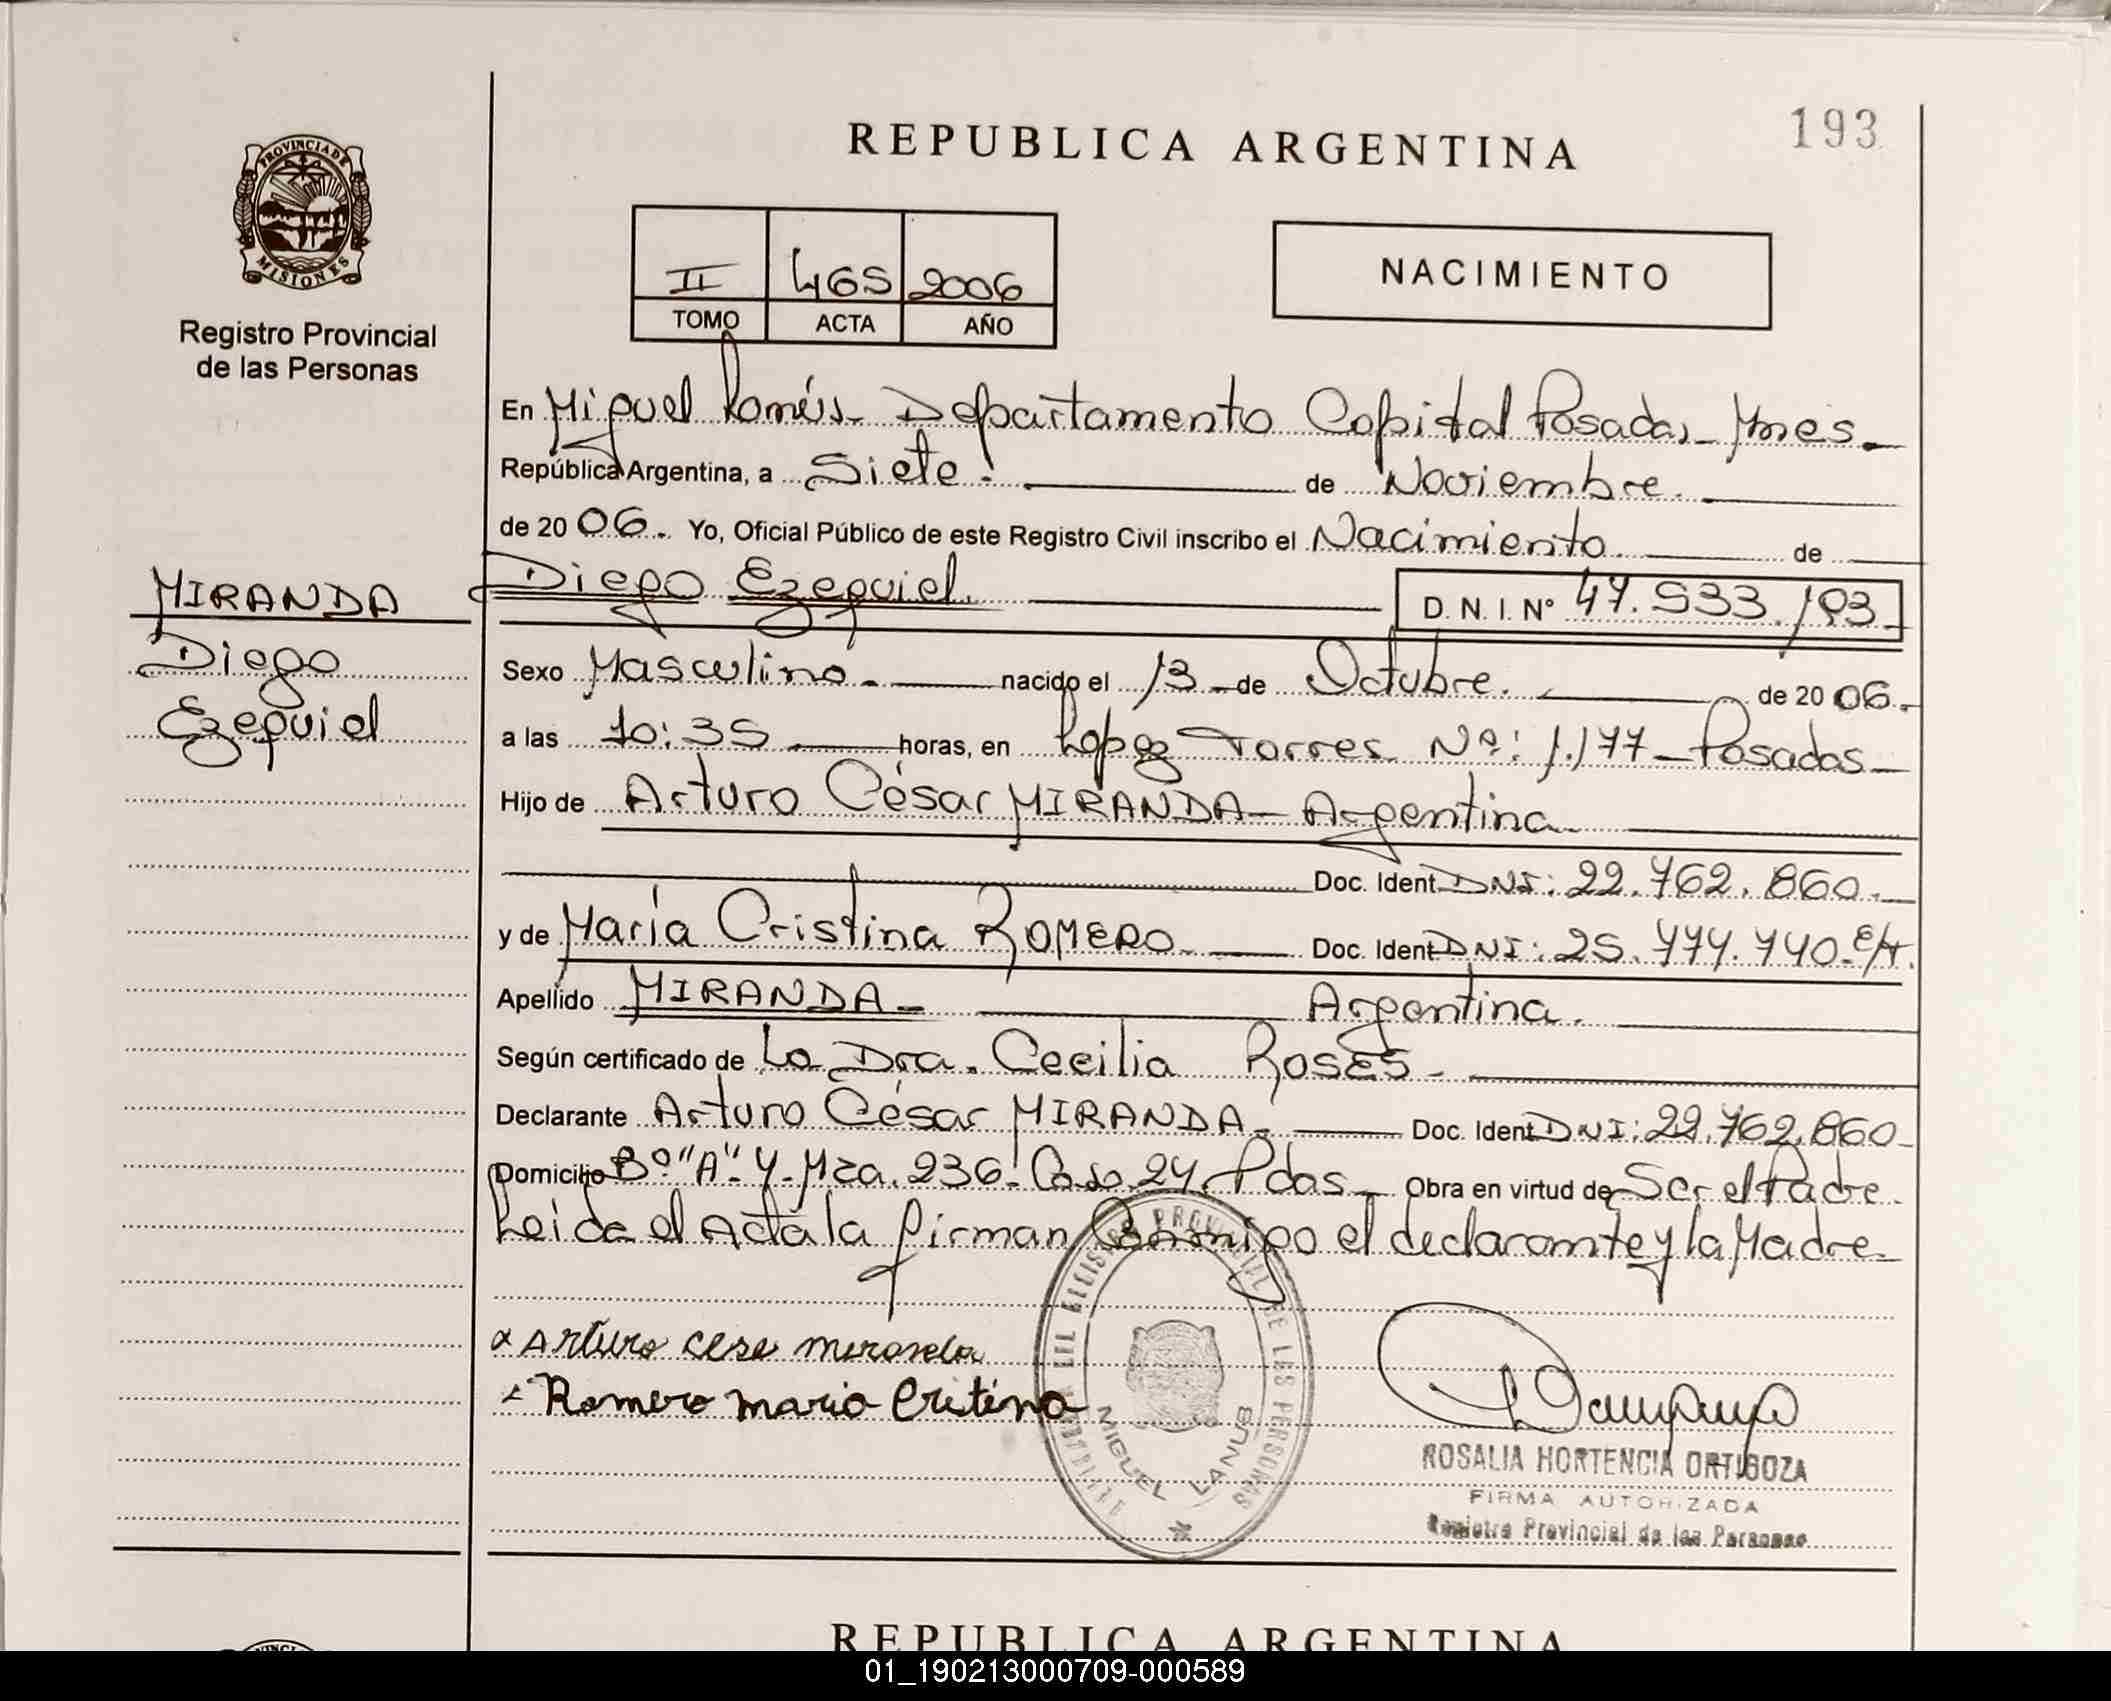 REPUBLICA ARGENTINA
193
PROVINCIA DE
MISIONES
Registro Provincial
de las Personas
II 465 2006
TOMO ACTA AÑO
NACIMIENTO
En Miguel Lanús - Departamento Capital Posadas - Mnes -
República Argentina, a Siete. de Noviembre.
de 2006. Yo, Oficial Público de este Registro Civil inscribo el Nacimiento de
MIRANDA
Diego
Ezequiel
Diego Ezequiel. D. N. I. Nº 47.533.193
Sexo Masculino. nacido el 13 de Octubre. de 2006.
a las 10:35 horas, en Lopez Torres Nº: 1.177 - Posadas -
Hijo de Arturo César MIRANDA - Argentina
Doc. Ident DNI: 22.762.860.
y de María Cristina ROMERO. Doc. Ident DNI: 25.777.740.
Apellido MIRANDA - Argentina.
Según certificado de La Dra. Cecilia Roses.
Declarante Arturo César MIRANDA - Doc. Ident DNI: 22.762.860
Domicilio Bº "A" 4. Mza. 236. Casa 24. Pdas. Obra en virtud de Ser el Padre.
Leida el Acta la firman Conmigo el declarante y la Madre.
x Arturo cese miranda
Romero maria Critina
MIGUEL LANUS
ROSALIA HORTENCIA ORTIGOZA
FIRMA AUTORIZADA
Registro Provincial de las Personas
REPUBLICA ARGENTINA
01_190213000709-000589